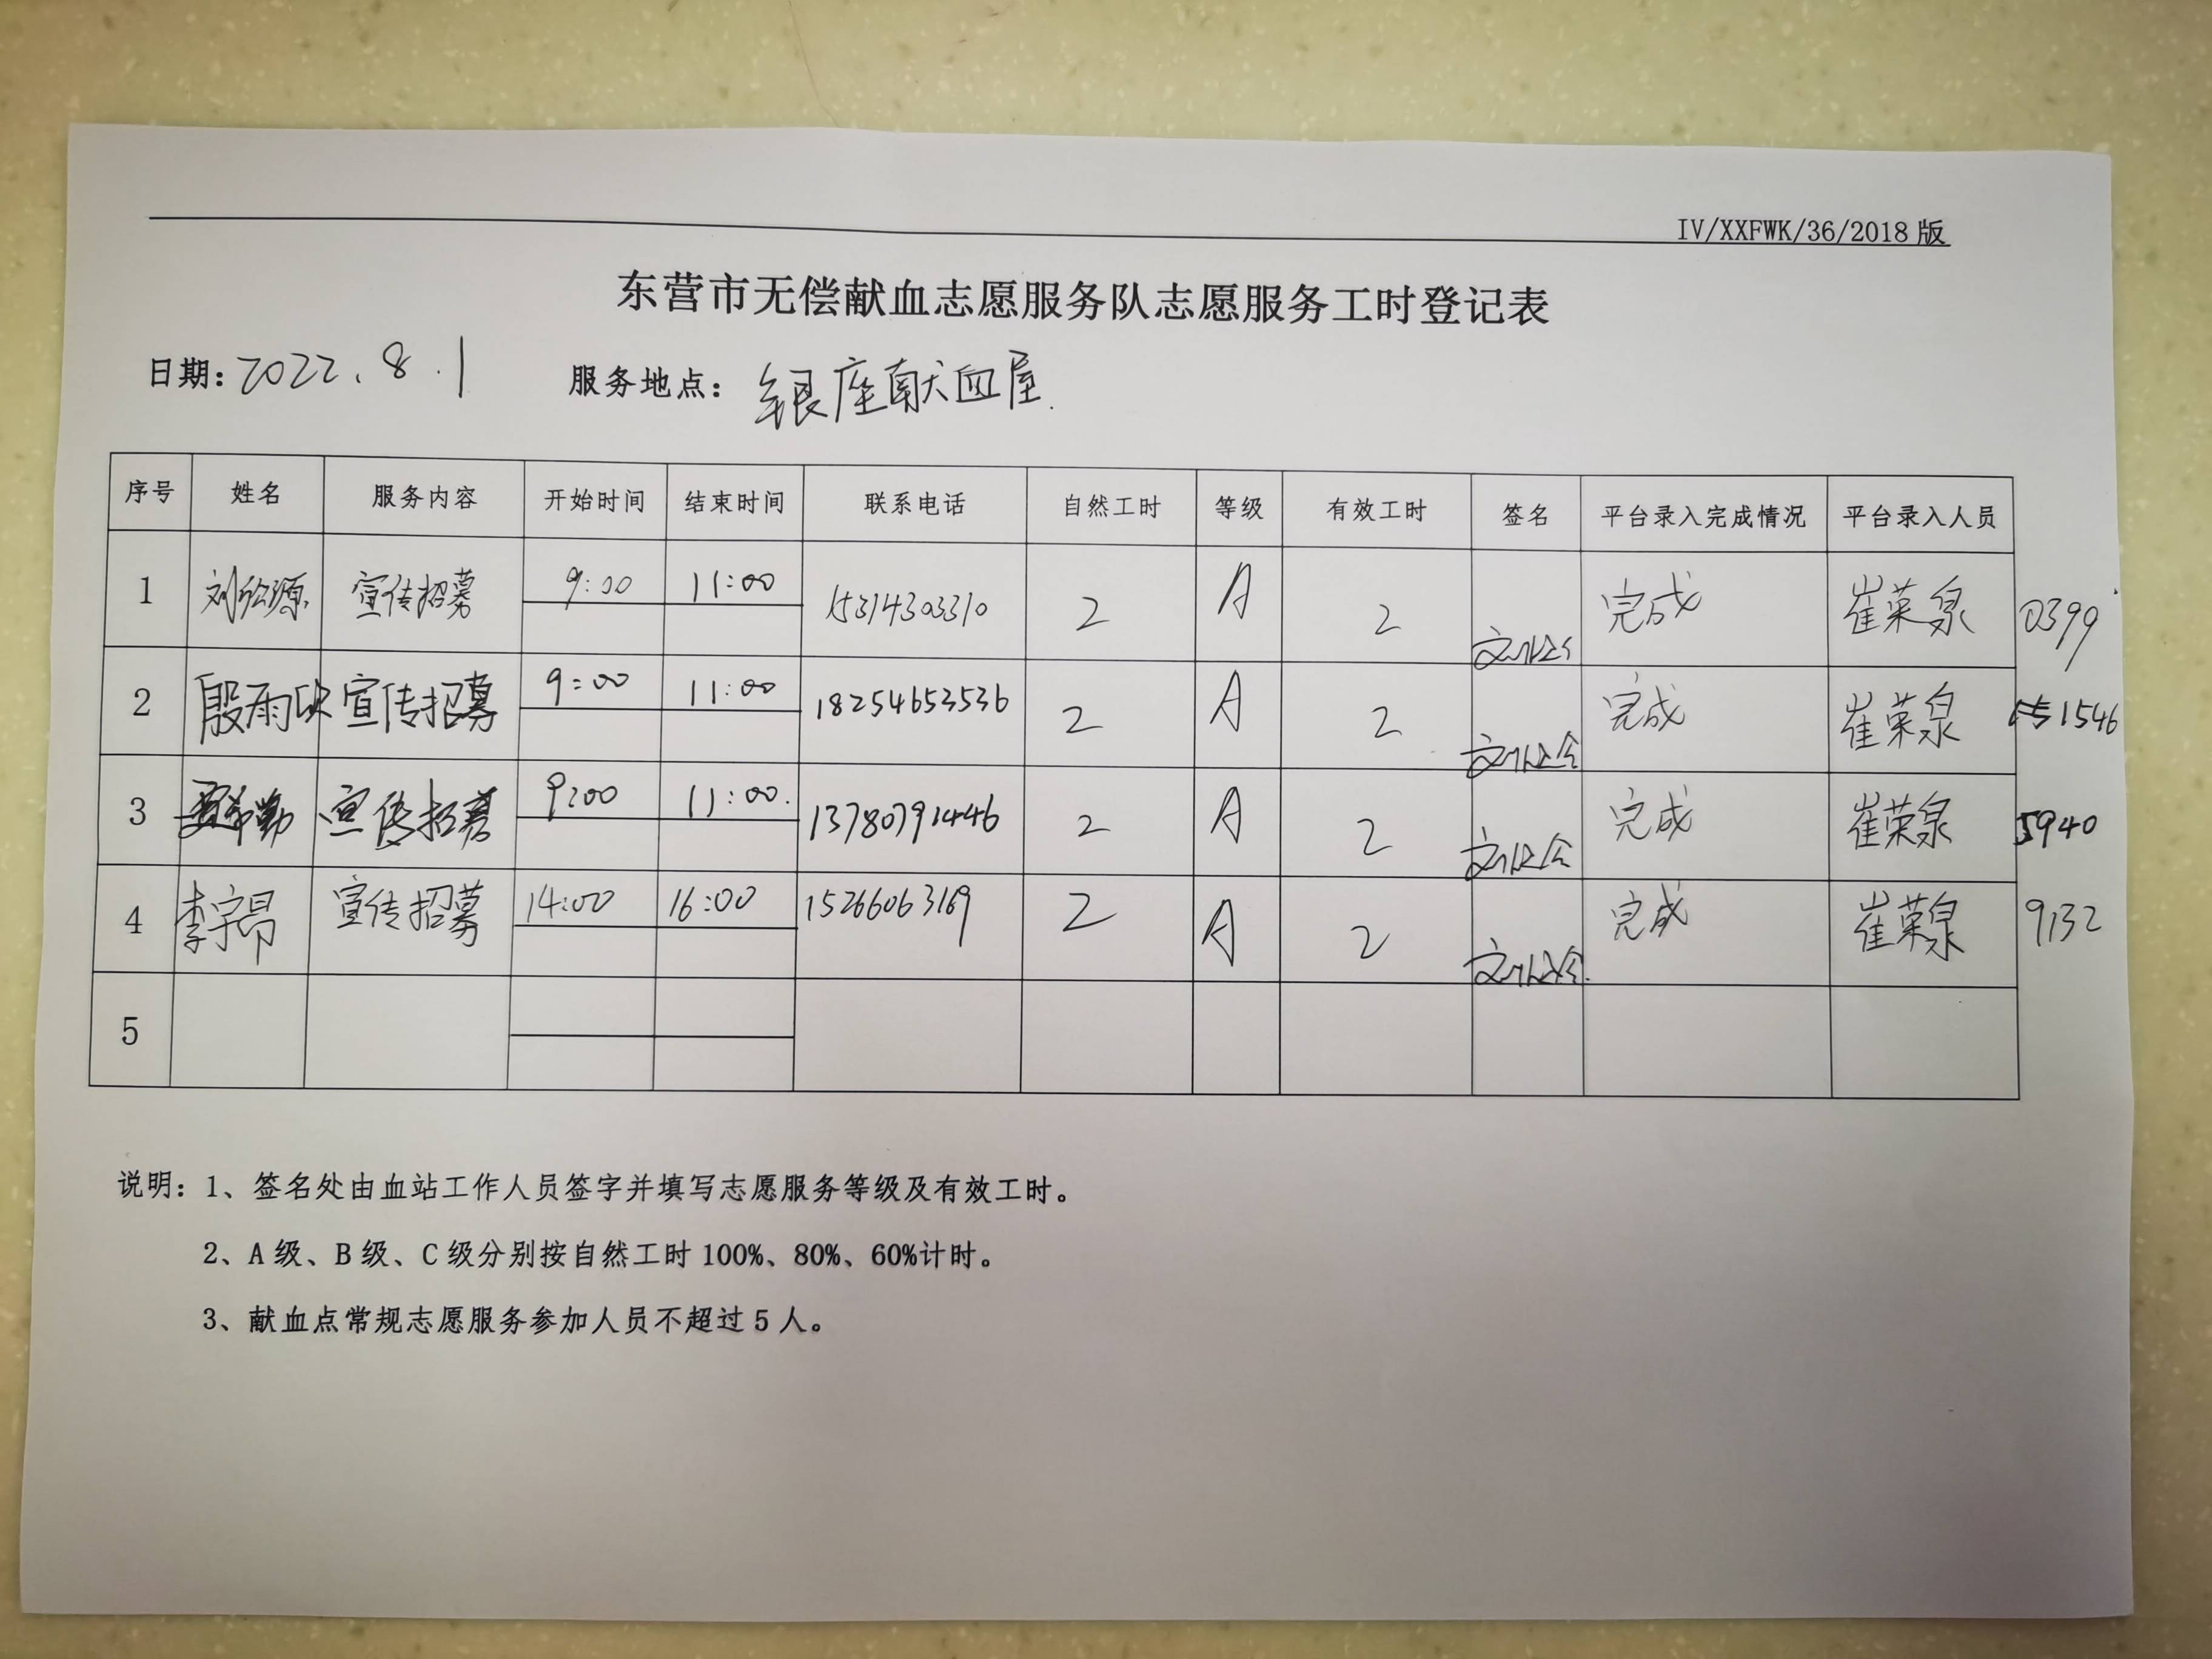 IV/XXFWK/36/2018版
东营市无偿献血志愿服务队志愿服务工时登记表
日期：2022.8.1 服务地点：银座献血屋.
序号 姓名 服务内容 开始时间 结束时间 联系电话 自然工时 等级 有效工时 签名 平台录入完成情况 平台录入人员
1 宣传招募 9:00 11:00 15314303310 2 A 2 完成 崔荣泉 0399
2 殷雨欣 宣传招募 9:00 11:00 18254653536 2 A 2 完成 崔荣泉 1546
3 宣传招募 9:00 11:00. 13780791446 2 A 2 完成 崔荣泉 5940
4 李宇昂 宣传招募 14:00 16:00 15266063169 2 A 2 完成 崔荣泉 9132
5
说明：1、签名处由血站工作人员签字并填写志愿服务等级及有效工时。
2、A级、B级、C级分别按自然工时100%、80%、60%计时。
3、献血点常规志愿服务参加人员不超过5人。